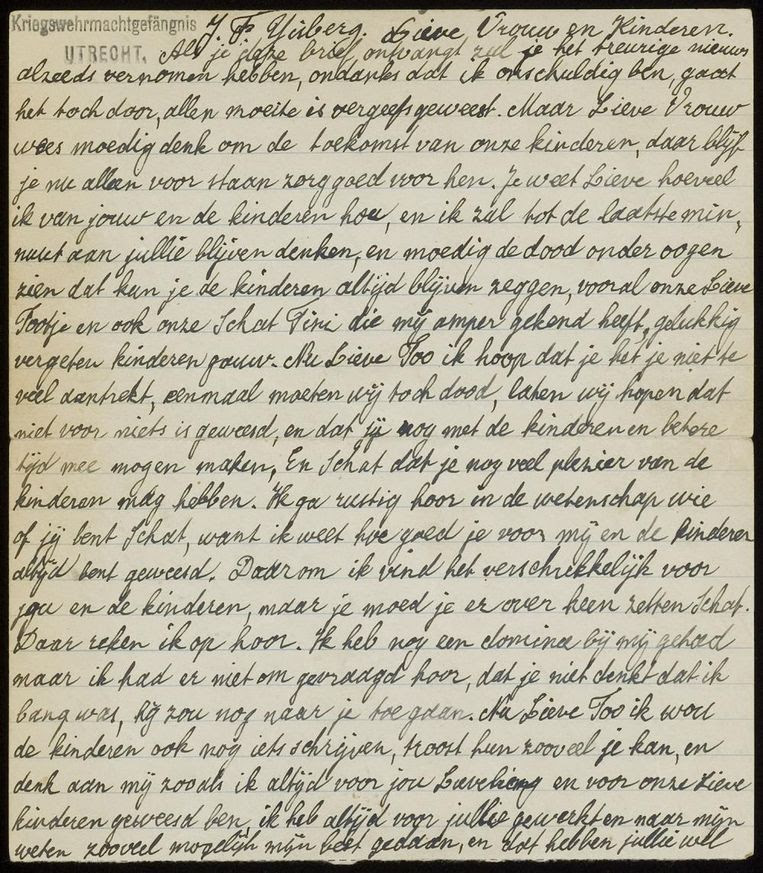 Kriegswehrmachtgefängnis
UTRECHT.
J. F. Lieve Vrouw en Kinderen.
Als je deze brief ontvangt zul je het treurige nieuws
alreeds vernomen hebben, ondanks dat ik onschuldig ben, gaat
het toch door, allen moeite is vergeefs geweest. Maar Lieve Vrouw
wees moedig denk om de toekomst van onze kinderen, daar blijf
je nu alleen voor staan zorg goed voor hen. Je weet Lieve hoeveel
ik van jouw en de kinderen hou, en ik zal tot de laatste min,
nuut aan jullie blijven denken, en moedig de dood onder oogen
zien dat kun je de kinderen altijd blijven zeggen, vooral onze Lieve
Tootje en ook onze Schat Tini die mij amper gekend heeft, gelukkig
vergeten kinderen gauw. Nu Lieve Too ik hoop dat je het je niet te
veel aantrekt, eenmaal moeten wij toch dood, laten wij hopen dat
niet voor niets is geweesd, en dat jij nog met de kinderen en betere
tijd mee mogen maken. En Schat dat je nog veel plezier van de
kinderen mag hebben. Ik ga rustig hoor in de wetenschap wie
of jij bent Schat, want ik weet hoe goed je voor mij en de kinderen
altijd bent geweesd. Daarom ik vind het verschrikkelijk voor
jou en de kinderen, maar je moed je er over heen zetten Schat.
Daar reken ik op hoor. Ik heb nog een dominee bij mij gehad
maar ik had er niet om gevraagd hoor, dat je niet denkt dat ik
bang was, hij zou nog naar je toe gaan. Nu Lieve Too ik wou
de kinderen ook nog iets schrijven, troost hun zooveel je kan, en
denk aan mij zooals ik altijd voor jou Laveling en voor onze Lieve
kinderen geweesd ben, ik heb altijd voor jullie gewerkt en naar mijn
weten zooveel mogelijk mijn best gedaan, en dat hebben jullie wel